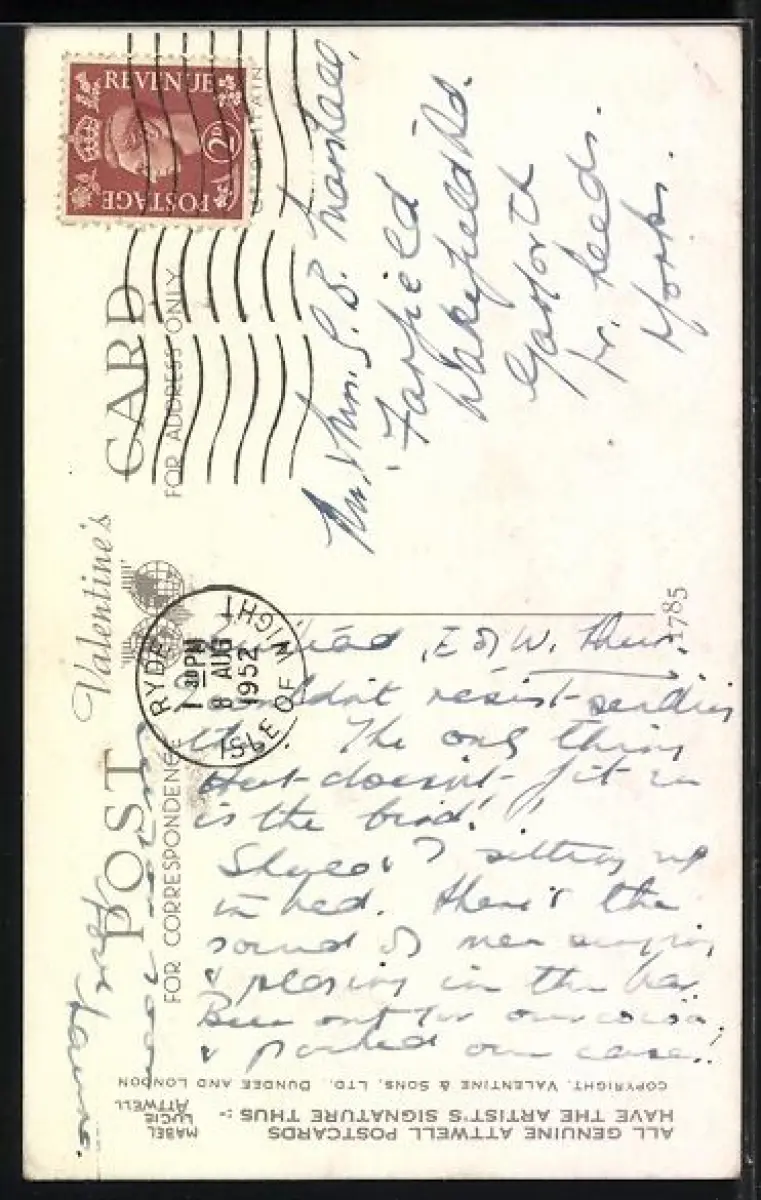 POST CARD
Valentine's
FOR CORRESPONDENCE
FOR ADDRESS ONLY
REVENUE
2D
POSTAGE
GT. BRITAIN
RYDE
1 30PM
8 AUG
1952
ISLE OF WIGHT
Mr. & Mrs. G. B. Marshall,
Fairfield
Wakefield Rd.
Garforth
Nr. Leeds.
Yorks.
1785
resist sending
The only thing
that doesn't fit in
is the bird!
& I sitting up
in bed. There's the
sound of men singing
& in the bar
Been out for our
& our case!
love
ALL GENUINE ATTWELL POSTCARDS
HAVE THE ARTIST'S SIGNATURE THUS :-
MABEL
LUCIE
ATTWELL
COPYRIGHT, VALENTINE & SONS, LTD., DUNDEE AND LONDON